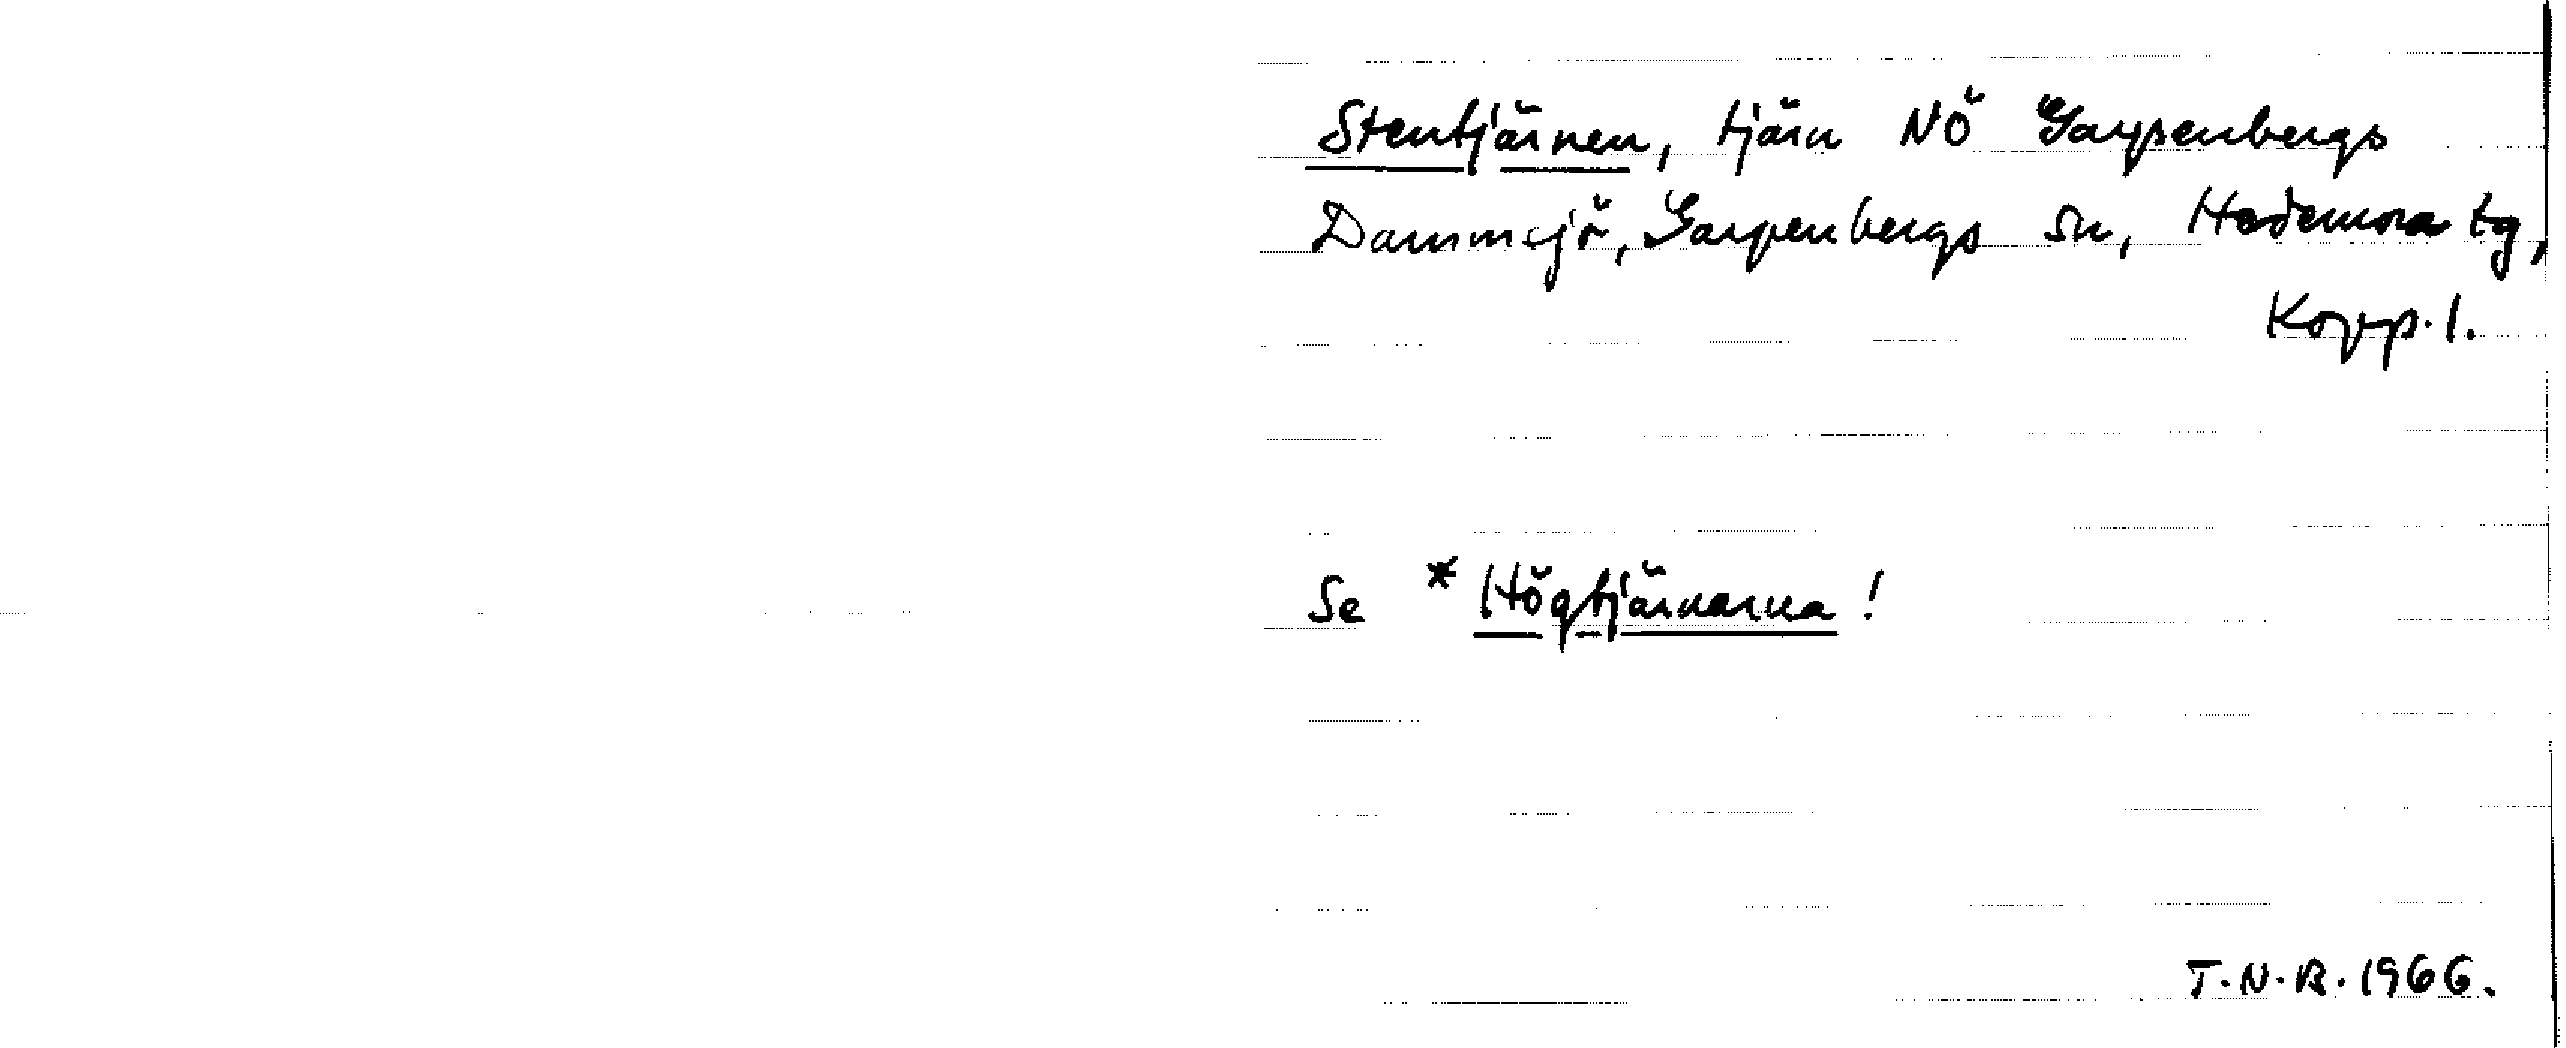 Stentjärnen, tjärn NÖ Garpenbergs
Dammsjö, Garpenbergs sn, Hedemora tg,
Kopp. l.
Se * Högtjärnarna !
T.N.R. 1966.